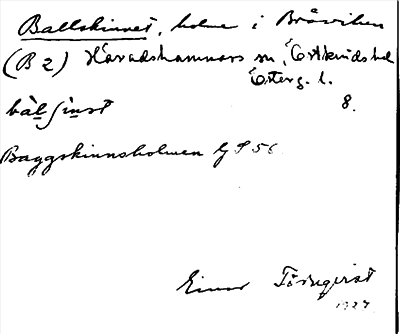 Ballskinnet, holme i Bråviken
(B 2) Häradshammars sn, Östkinds hd
Österg. l.
8.
bàlʃinət
Baggskinnsholmen GS 56
Einar Törnqvist
1927